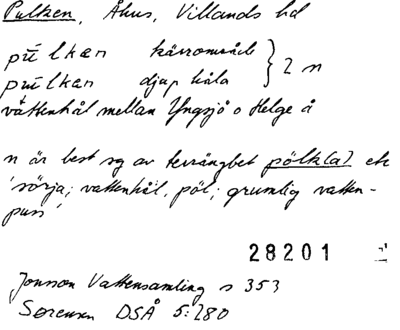 Pulken, Åhus, Villands hd
pū̀lkan kärrområde } 2 n
pū̀lkan djup håla
vattenhål mellan Yngsjö o Helge å
n är best sg av terrängbet pölk(a) etc
'sörja; vattenhål, pöl; grumlig vatten-
puss'
28201
Jonsson Vattensamling s 353
Sörensen DSÅ 5:280